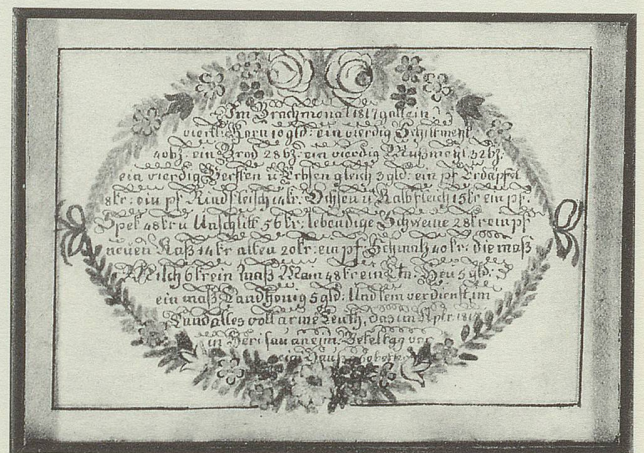 Im Brachmonat 1817 galt ein
viertel Korn 10 gld: ein vierdig Schiltmehl
40 bz: ein Brod 28 bz: ein vierdig Mußmehl 52 bz:
ein vierdig Gersten u Erbsen gleich 3 gld: ein pf Erdäpfel
8 kr: ein pf: Rindfleisch 14 kr: Ochsen u Kalbfleich 15 kr ein pf:
Spek 48 kr u Unschlitt 56 kr: lebendige Schweine 28 kr ein pf
neuen Käß 14 kr alten 20 kr: ein pf: Schmalz 40 kr: die maß
Milch 6 kr ein maß Wein 48 kr ein Heu 5 gld:
ein maß Landhonig 5 gld: Und kein verdienst, im
Land alles voll arme Leuth, das im
in Herisau an eim Betteltag vor
ein Hauß